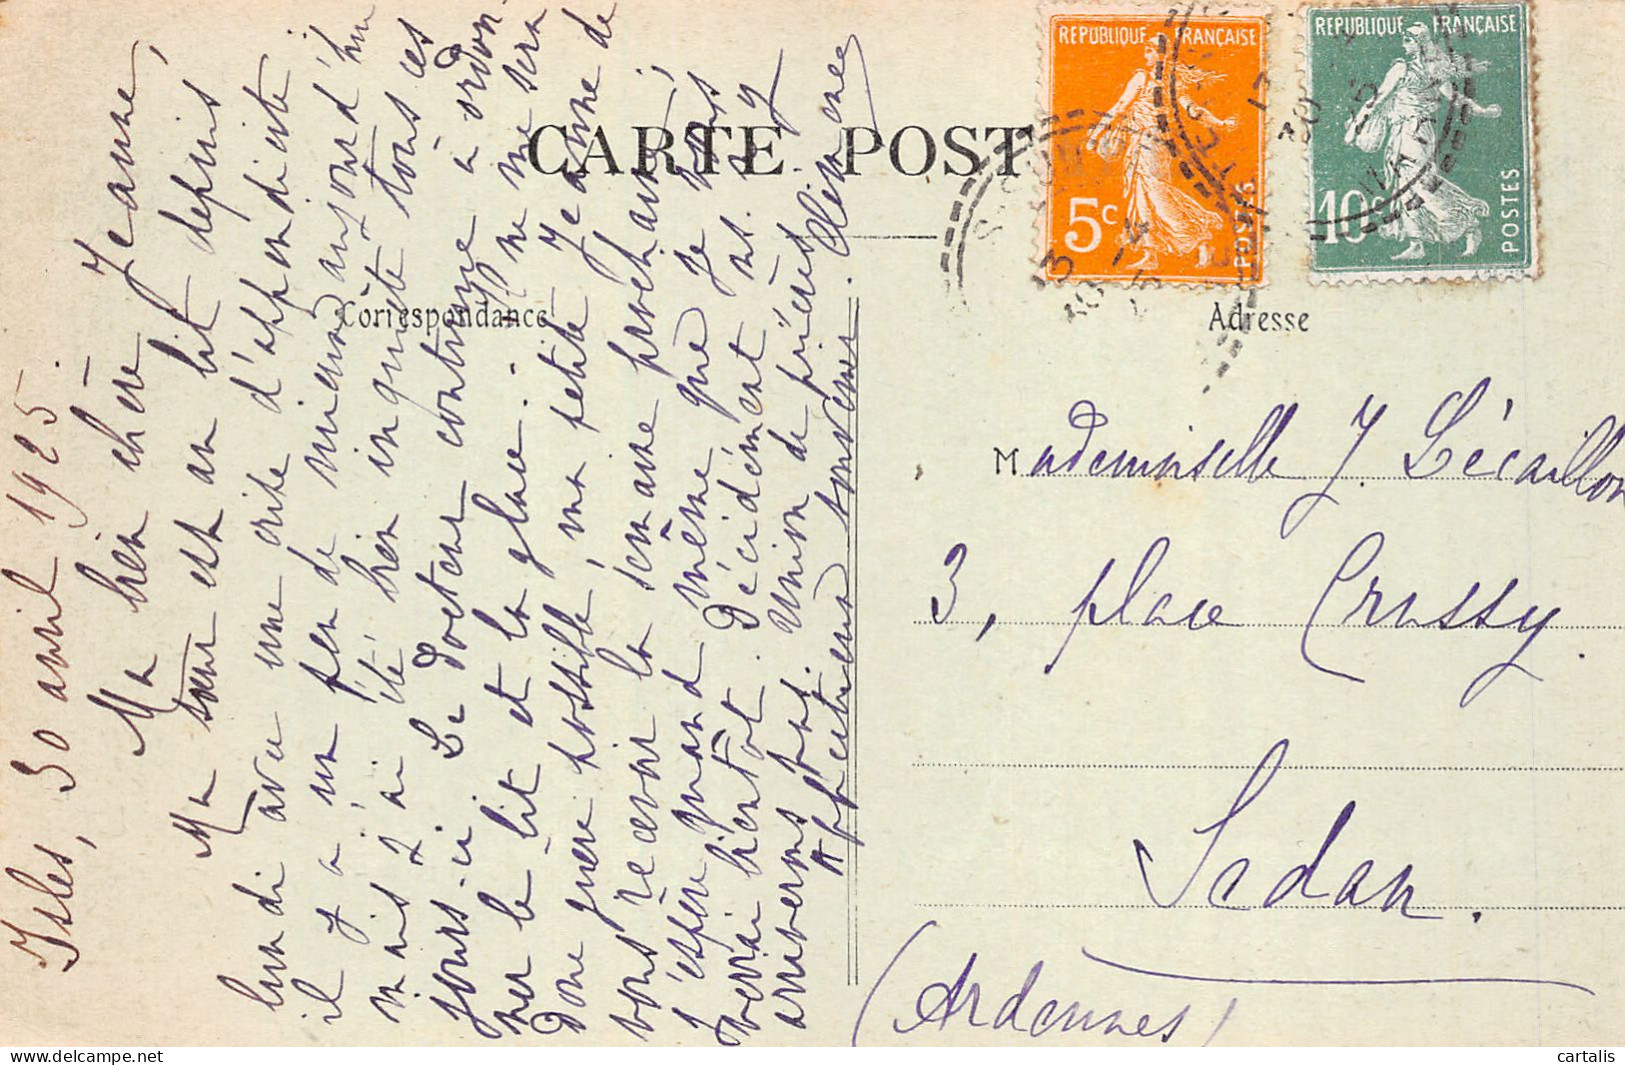 CARTE POST
Correspondance
Adresse
REPUBLIQUE FRANÇAISE
5c
POSTES
REPUBLIQUE FRANÇAISE
10c
POSTES
13
30 -4
25
Isles, 30 avril 1925.
Ma bien chère Jeanne,
Ma sœur est au lit depuis
lundi avec une crise d'appendicite ;
il y a un peu de mieux aujourd'hui
mais j'ai été bien inquiète tous ces
jours-ci. Le docteur continue à ordon-
ner le lit et la glace. Il ne me sera
donc guère possible, ma petite Jeanne de
vous recevoir la semaine prochaine ;
j'espère quand même que je vous
verrai bientôt. Décidément ns. n'y
arriverons pas. Union de prières.
Affectueux souvenir. Clémence
Mademoiselle J. Lécaillon
3, place Crussy.
Sedan.
(Ardennes)
cartalis